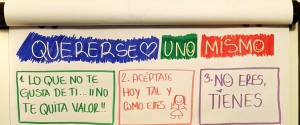 QUERERSE UNO MISMO
1. LO QUE NO TE
GUSTA DE TI...¡¡NO
TE QUITA VALOR!!
2. ACÉPTATE
HOY TAL Y
COMO ERES
3. NO ERES,
TIENES